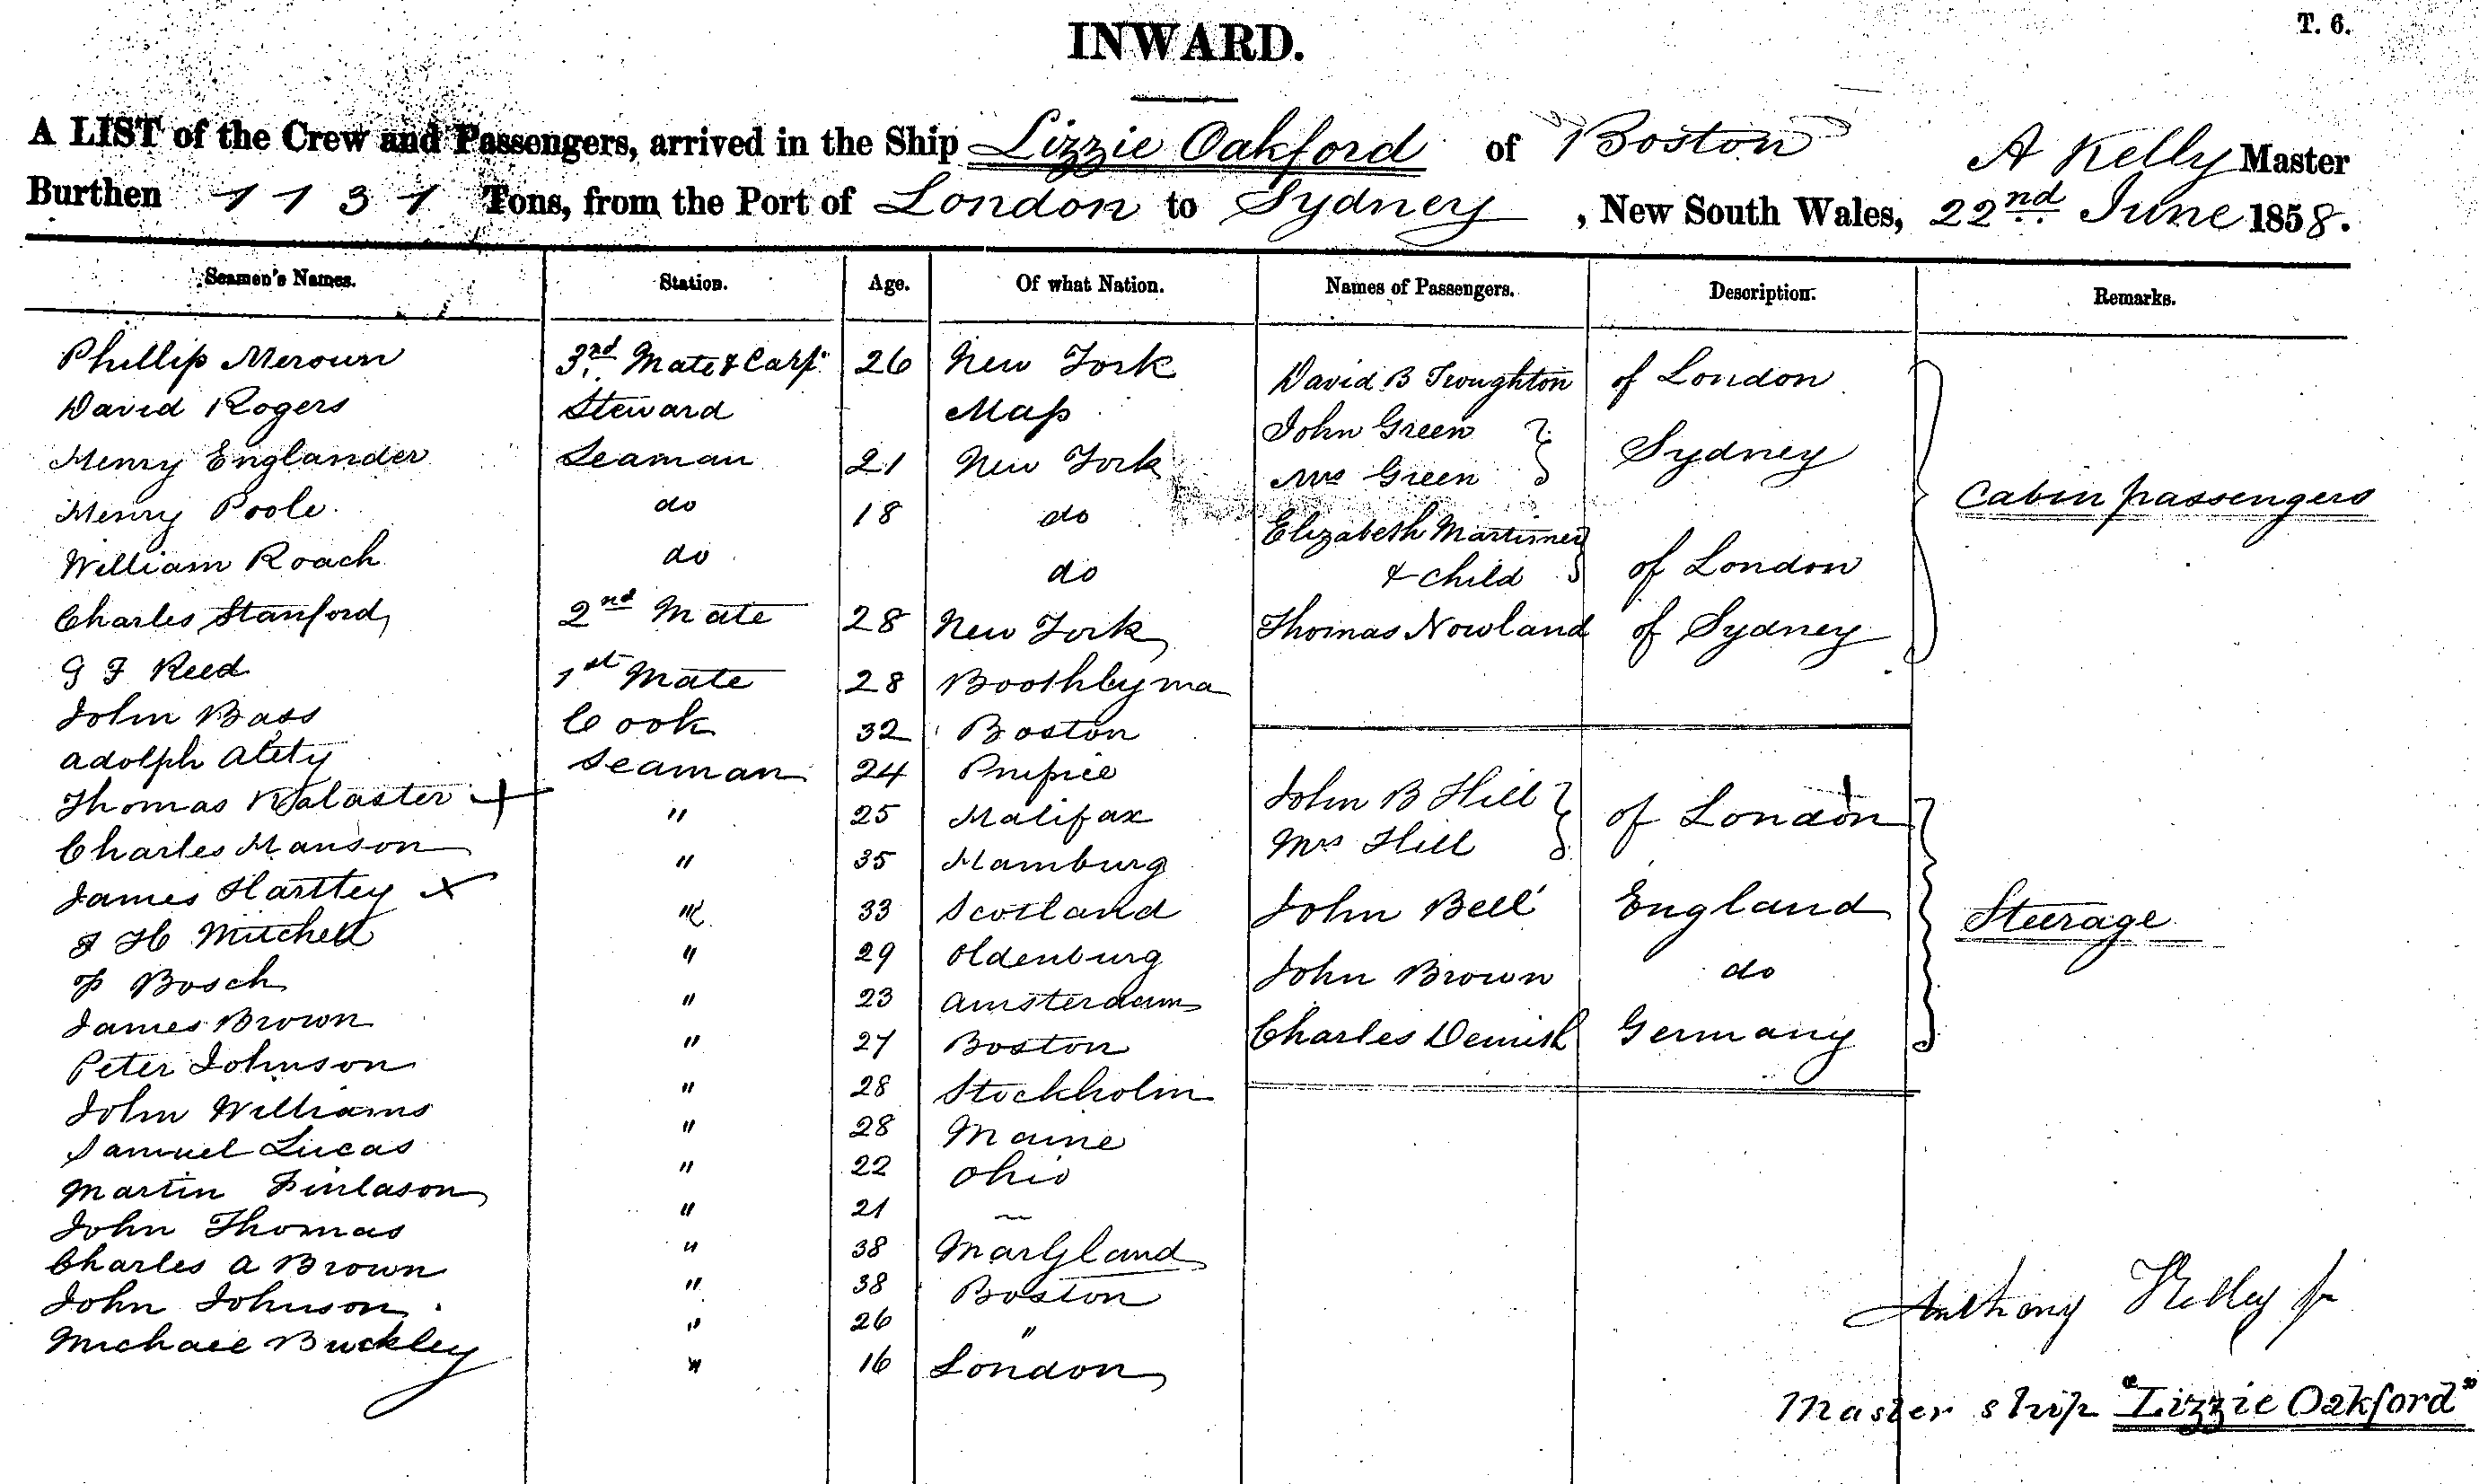 INWARD.
T. 6.
A LIST of the Crew and Passengers, arrived in the Ship Lizzie Oakford of Boston A Kelly Master
Burthen 1131 Tons, from the Port of London to Sydney, New South Wales, 22nd June 1858.
Seamen's Names. Station. Age. Of what Nation. Names of Passengers. Description. Remarks.
Phillip Meroun 3rd Mate & Carp. 26 New York
David Rogers Steward Mass
Henry Englander Seaman 21 New York
Henry Poole do 18 do
William Roach do do
Charles Stanford 2nd Mate 28 New York
G F Reed 1st Mate 28 Boothby ma
John Bass Cook 32 Boston
Adolph Seaman 24
Thomas + " 25 Halifax
Charles Hanson " 35 Hamburg
James Hartley x " 33 Scotland
H Mitchell " 29 Oldenburg
P Bosch " 23 Amsterdam
James Brown " 27 Boston
Peter Johnson " 28 Stockholm
John Williams " 28 Maine
Samuel Lucas " 22 Ohio
Martin Finlason " 21 —
John Thomas " 38 Maryland
Charles A Brown " 38 Boston
John Johnson " 26 "
Michael Buckley " 16 London
David B Troughton of London
John Green
Mrs Green
Sydney
Elizabeth Martimer
& child
of London
Thomas Nowland of Sydney
Cabin passengers
John B Hill
Mrs Hill
of London
John Bell England
John Brown do
Charles Germany
Steerage
Anthony Kelley Jr
Master ship "Lizzie Oakford"